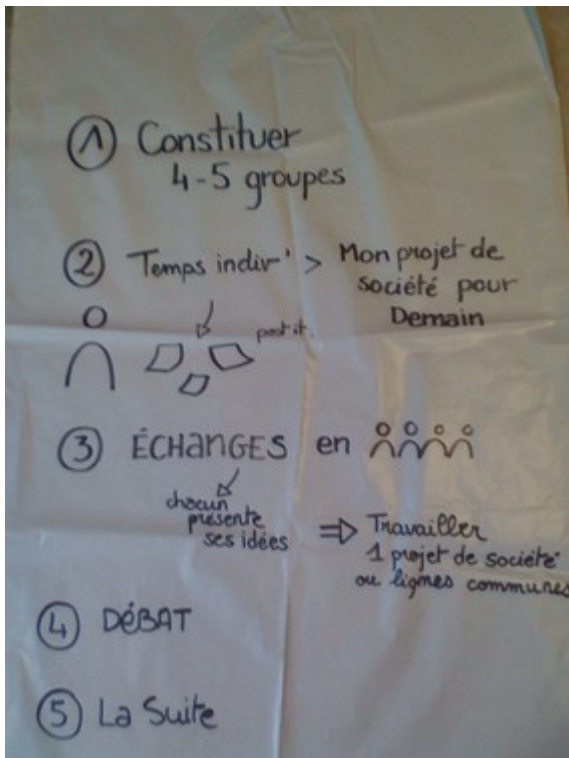 1 Constituer
4-5 groupes
2 Temps indiv' > Mon projet de
société pour
Demain
post it.
3 ÉCHANGES en
chacun
présente
ses idées
⇒ Travailler
1 projet de société
ou lignes communes
4 DÉBAT
5 La Suite